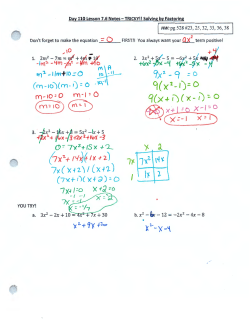 Day 110 Lesson 7.6 Notes – TRICKY!! Solving by Factoring
HW: pg.528 #23, 25, 32, 33, 36, 38
Don't forget to make the equation = 0 FIRST!! You always want your ax² term positive!
-10
m² - 11m + 10 = 0
(m - 10)(m - 1) = 0
m - 10 = 0 m - 1 = 0
m = 10 m = 1
9x² - 9 = 0
9(x² - 1) = 0
9(x + 1)(x - 1) = 0
x + 1 = 0 x - 1 = 0
x = -1 x = 1
0 = 7x² + 15x + 2
7x² + 14x + 1x + 2
7x(x + 2) 1(x + 2)
(7x + 1)(x + 2) = 0
7x + 1 = 0 x + 2 = 0
7x = -1 x = -2
x = -1/7
x 2
7x 7x² 14x
1 1x 2
YOU TRY!
a. 3x² - 2x + 10 = 4x² + 7x + 30
b. x² - 5x - 12 = -2x² - 4x - 8